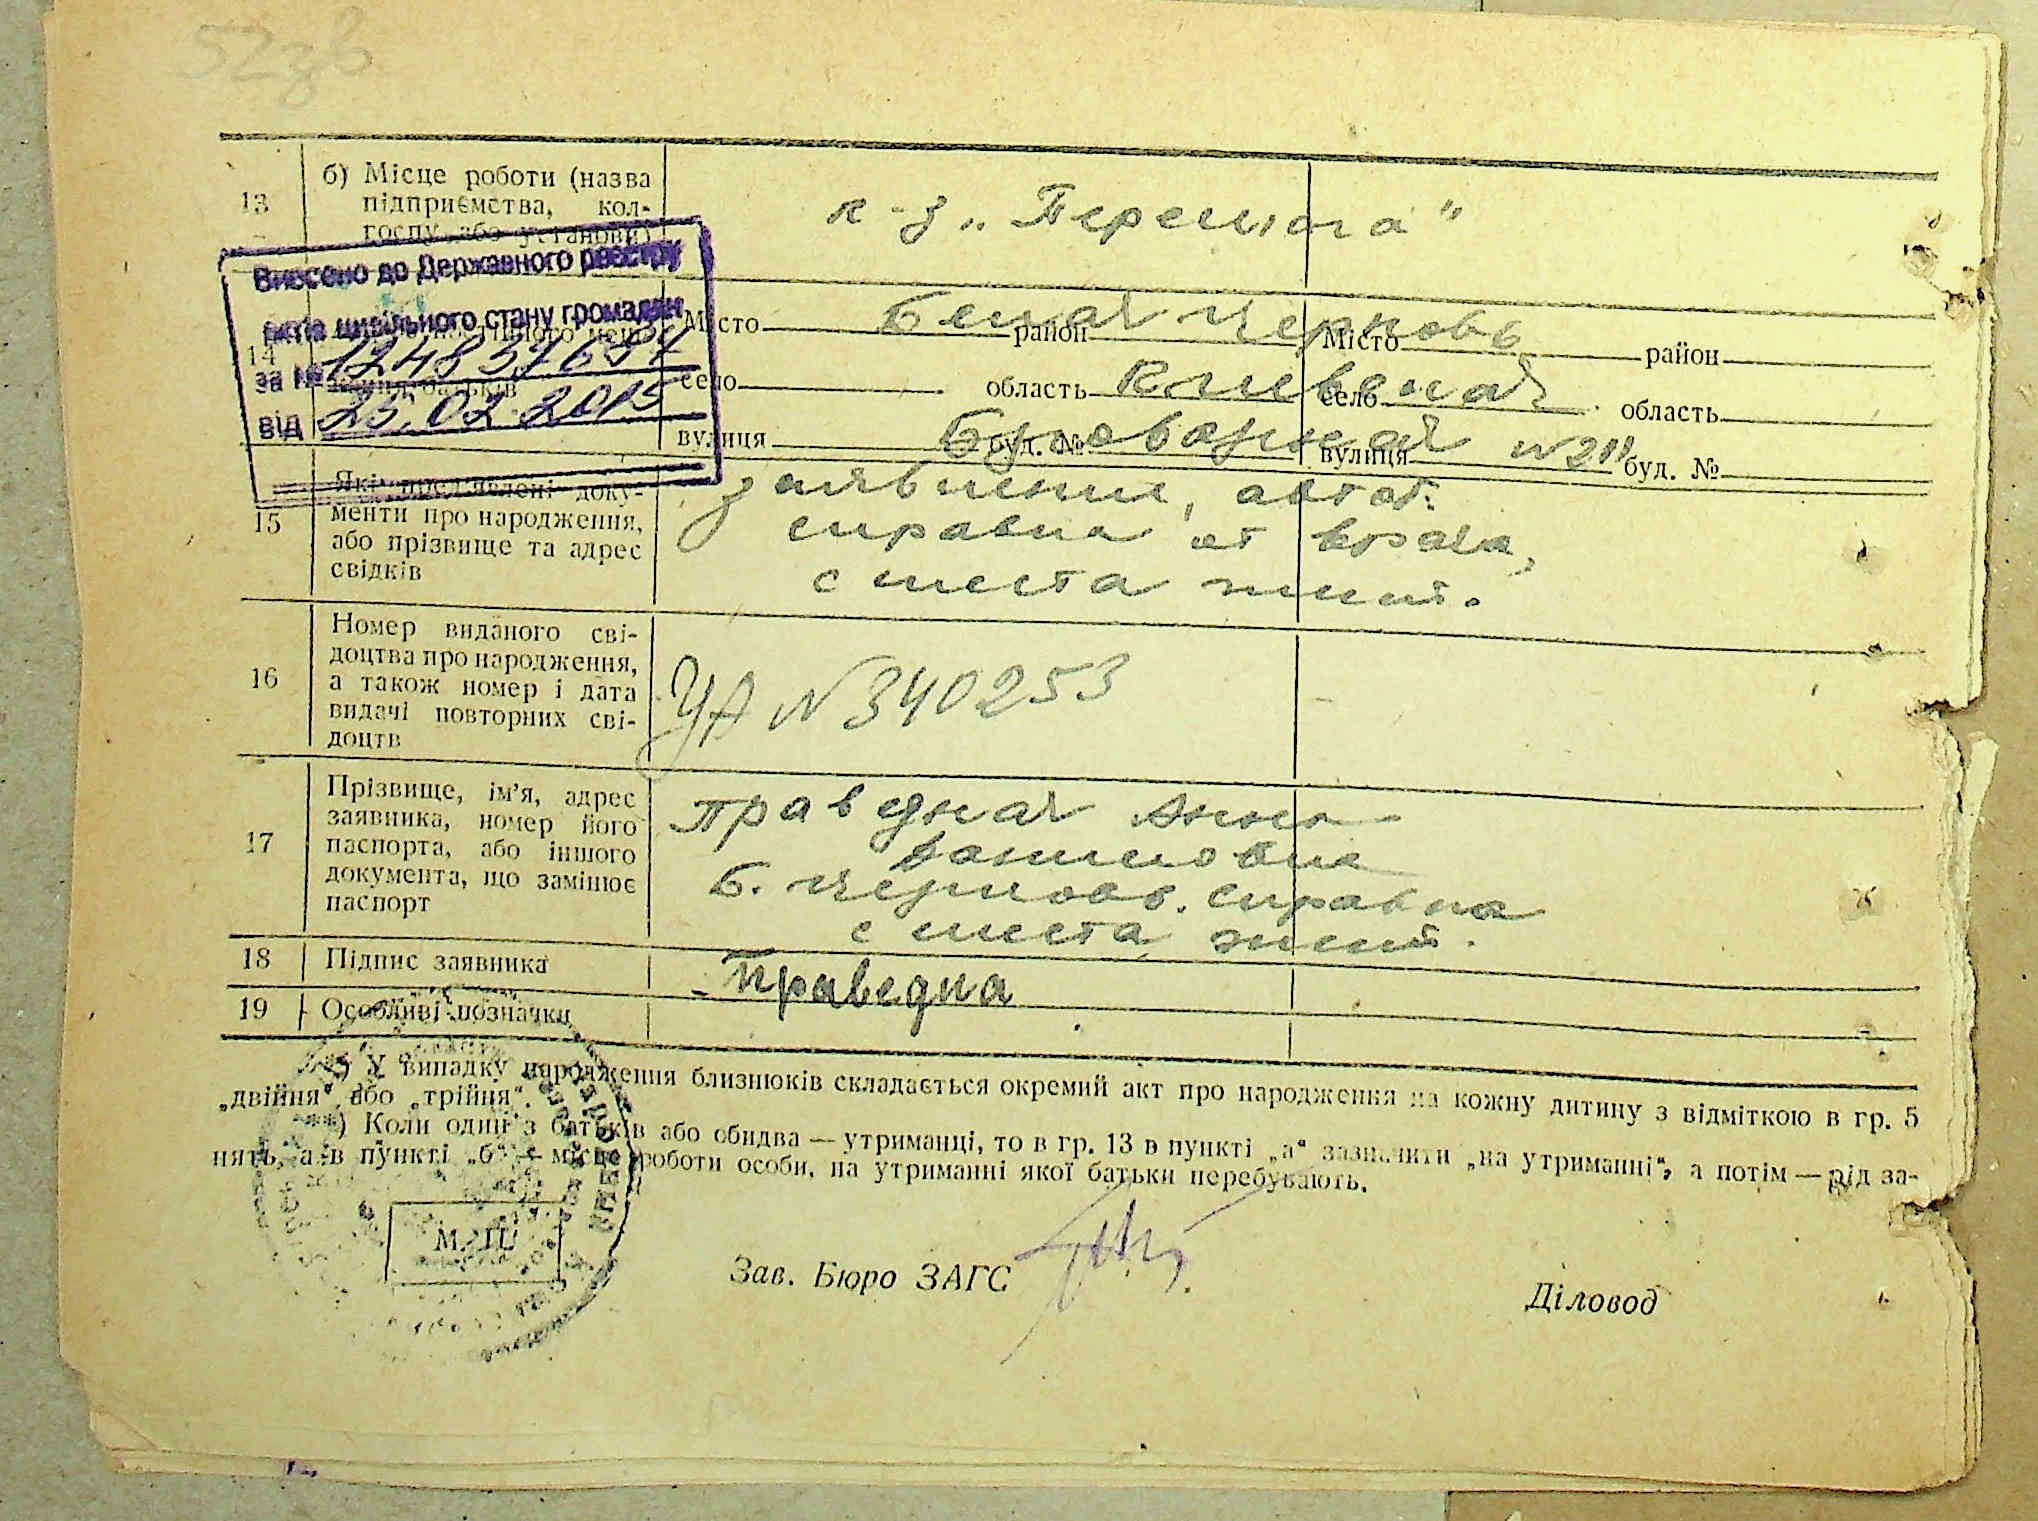 52зв
13 б) Місце роботи (назва
підприємства, кол-
госпу або установи)
к-з „Перемога"
Внесено до Державного реєстру
актів цивільного стану громадян
за №
від 25.02.2015
14
батьків
Місто район Місто район
Белая Церковь
село область село область
Киевская
вулиця буд. № вулиця буд. №
№211
15 Які пред'явлені доку-
менти про народження,
або прізвище та адрес
свідків
заявление,
справка от врача,
с места жит.
16 Номер виданого сві-
доцтва про народження,
а також номер і дата
видачі повторних сві-
доцтв
УА N 340253
17 Прізвище, ім'я, адрес
заявника, номер його
паспорта, або іншого
документа, що замінює
паспорт
Праведная Анна
Б. Церковь. справка
с места жит.
18 Підпис заявника
Праведна
19 Особливі позначки
*) У випадку народження близнюків складається окремий акт про народження на кожну дитину з відміткою в гр. 5
„двійня" або „трійня".
**) Коли один з батьків або обидва — утриманці, то в гр. 13 в пункті „а" зазначити „на утриманні", а потім — рід за-
нять, а в пункті „б" — місце роботи особи, на утриманні якої батьки перебувають.
М. П.
Зав. Бюро ЗАГС
Діловод